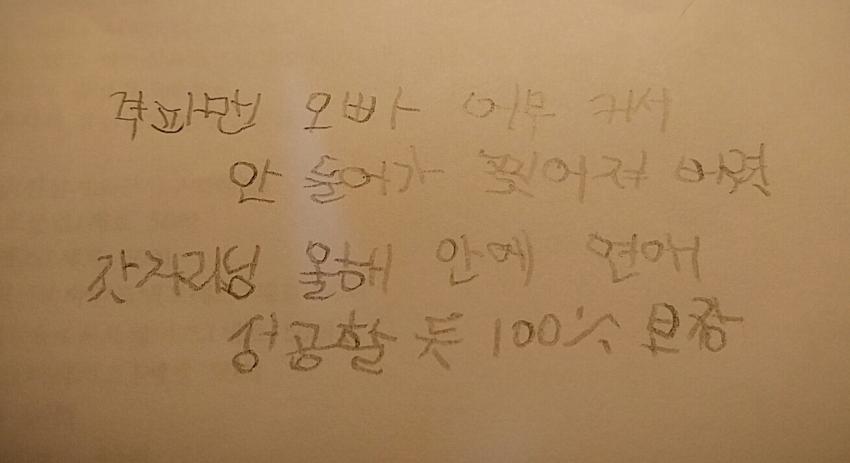 격파맨 오빠 너무 커서
안 들어가 찢어져 버렷
갓자리님 올해 안에 연애
성공할 듯 100% 보장